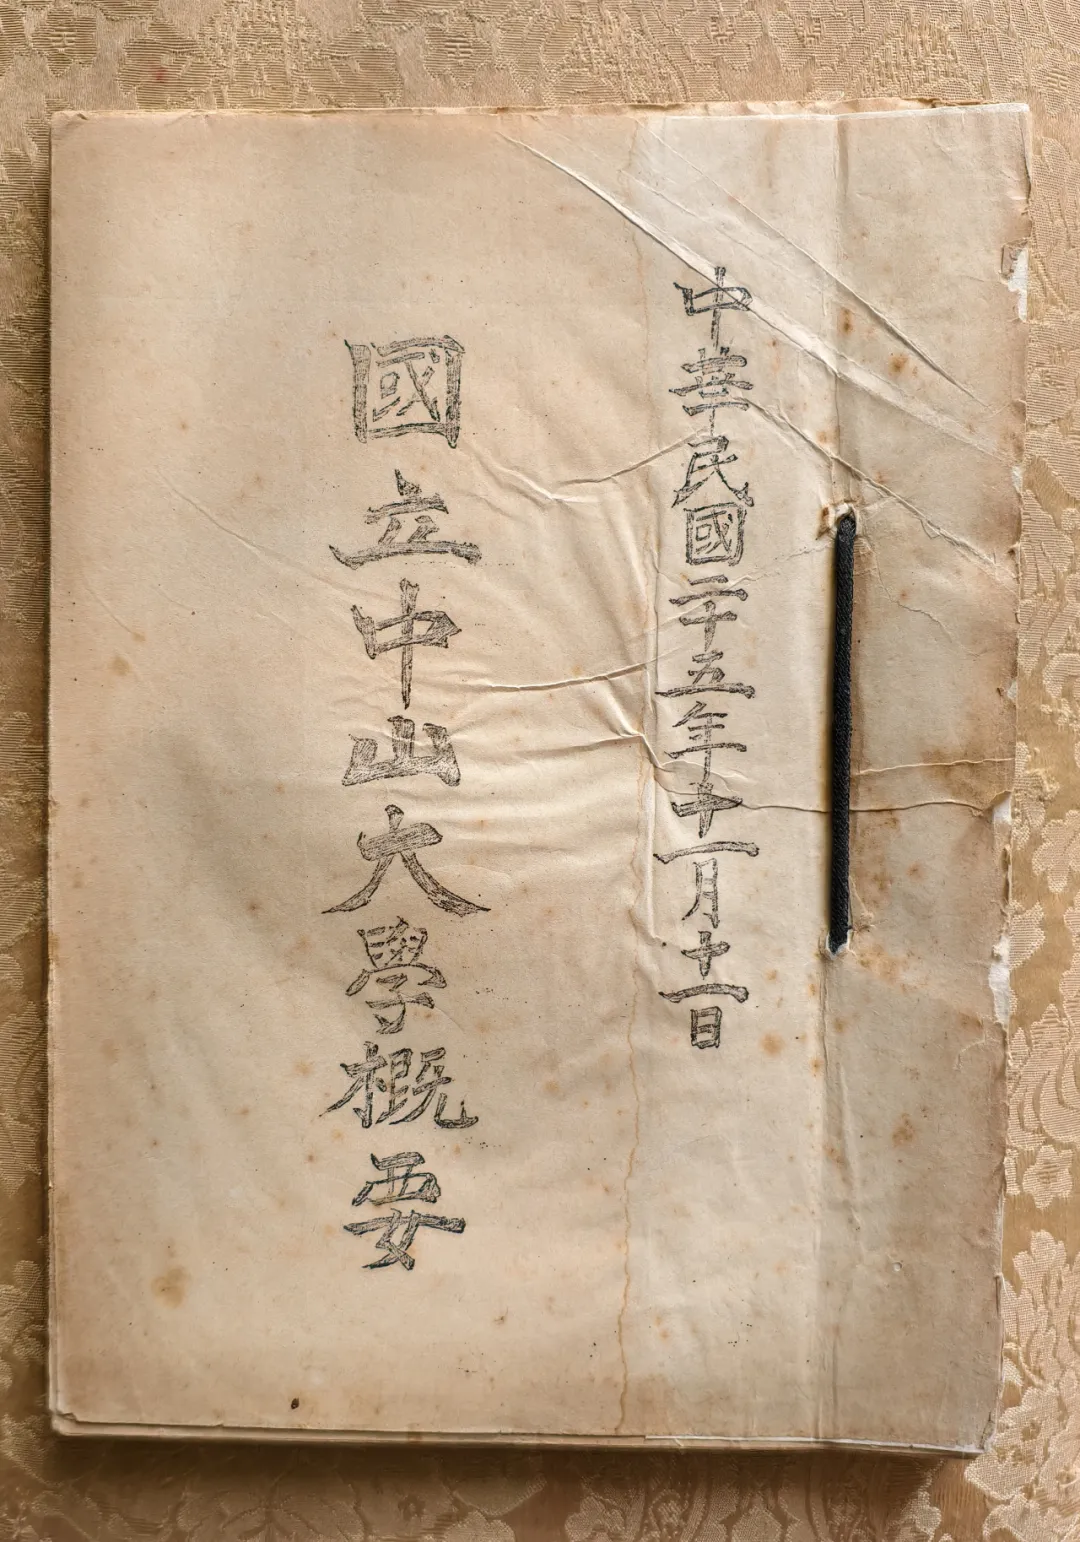 中華民國二十五年十一月十一日
國立中山大學概要